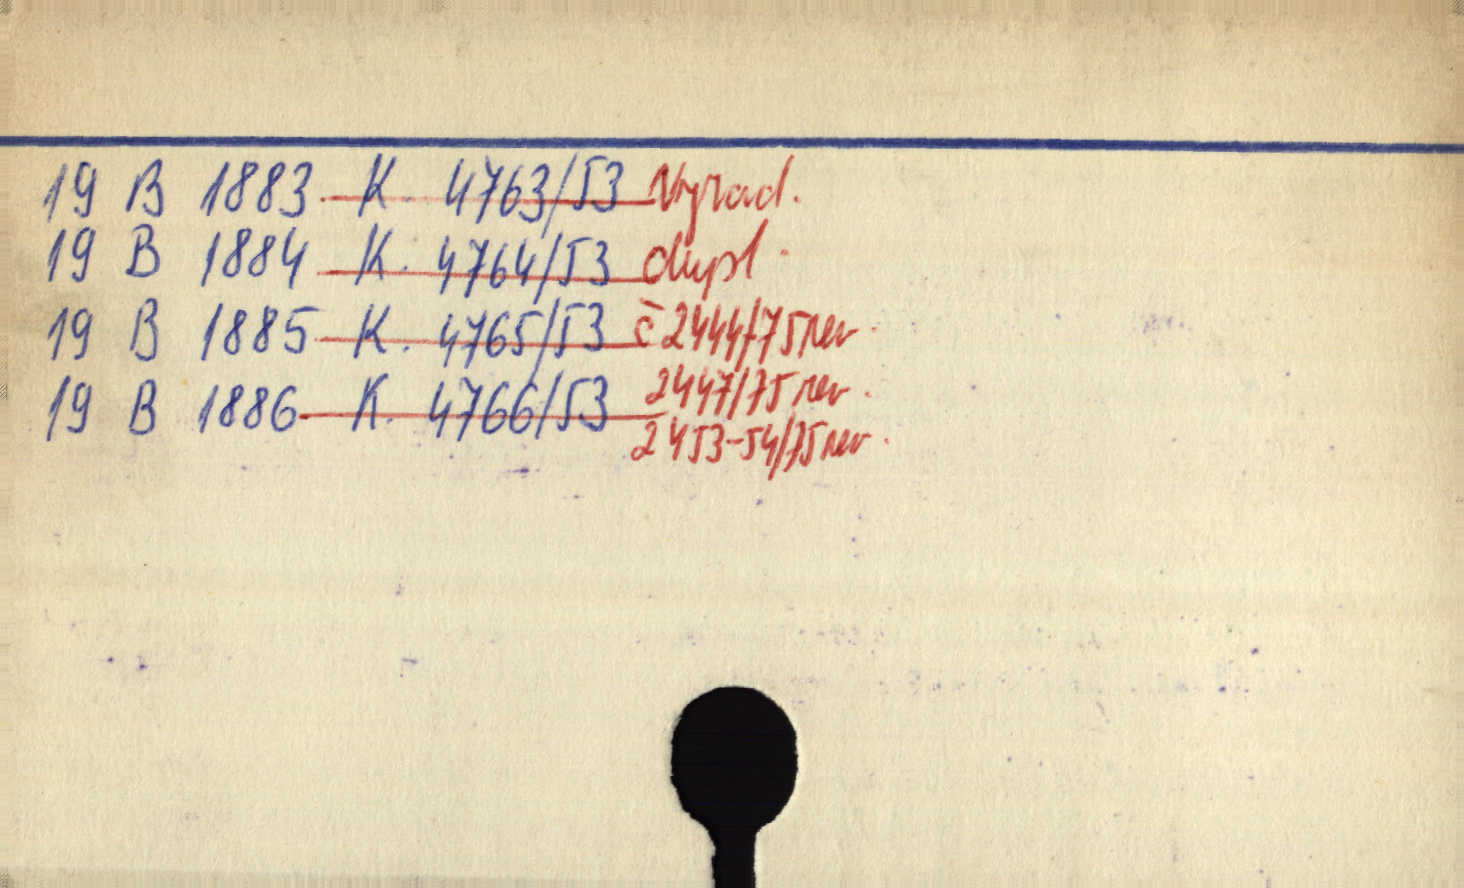 19 B 1883 K. 4763/53 Vyrad.
19 B 1884 K. 4764/53 dupl.
19 B 1885 K. 4765/53 č 2444/75 rev.
19 B 1886 K. 4766/53 2447/75 rev.
2453-54/75 rev.